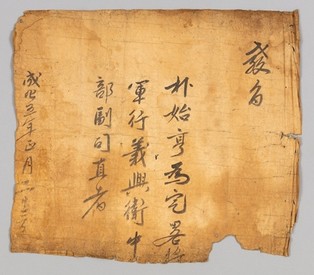 敎旨
朴始亨爲定略將
軍行義興衛中
部副司直者
成化五年正月